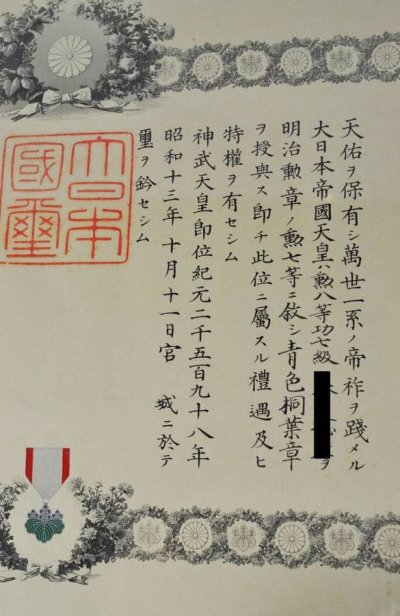 天佑ヲ保有シ萬世一系ノ帝祚ヲ踐メル
大日本帝國天皇ハ勲八等功七級 ヲ
明治勲章ノ勲七等ニ敘シ青色桐葉章
ヲ授與ス即チ此位ニ屬スル禮遇及ヒ
特權ヲ有セシム
神武天皇即位紀元二千五百九十八年
昭和十三年十月十一日宮 城ニ於テ
璽ヲ鈐セシム
大日本
國璽